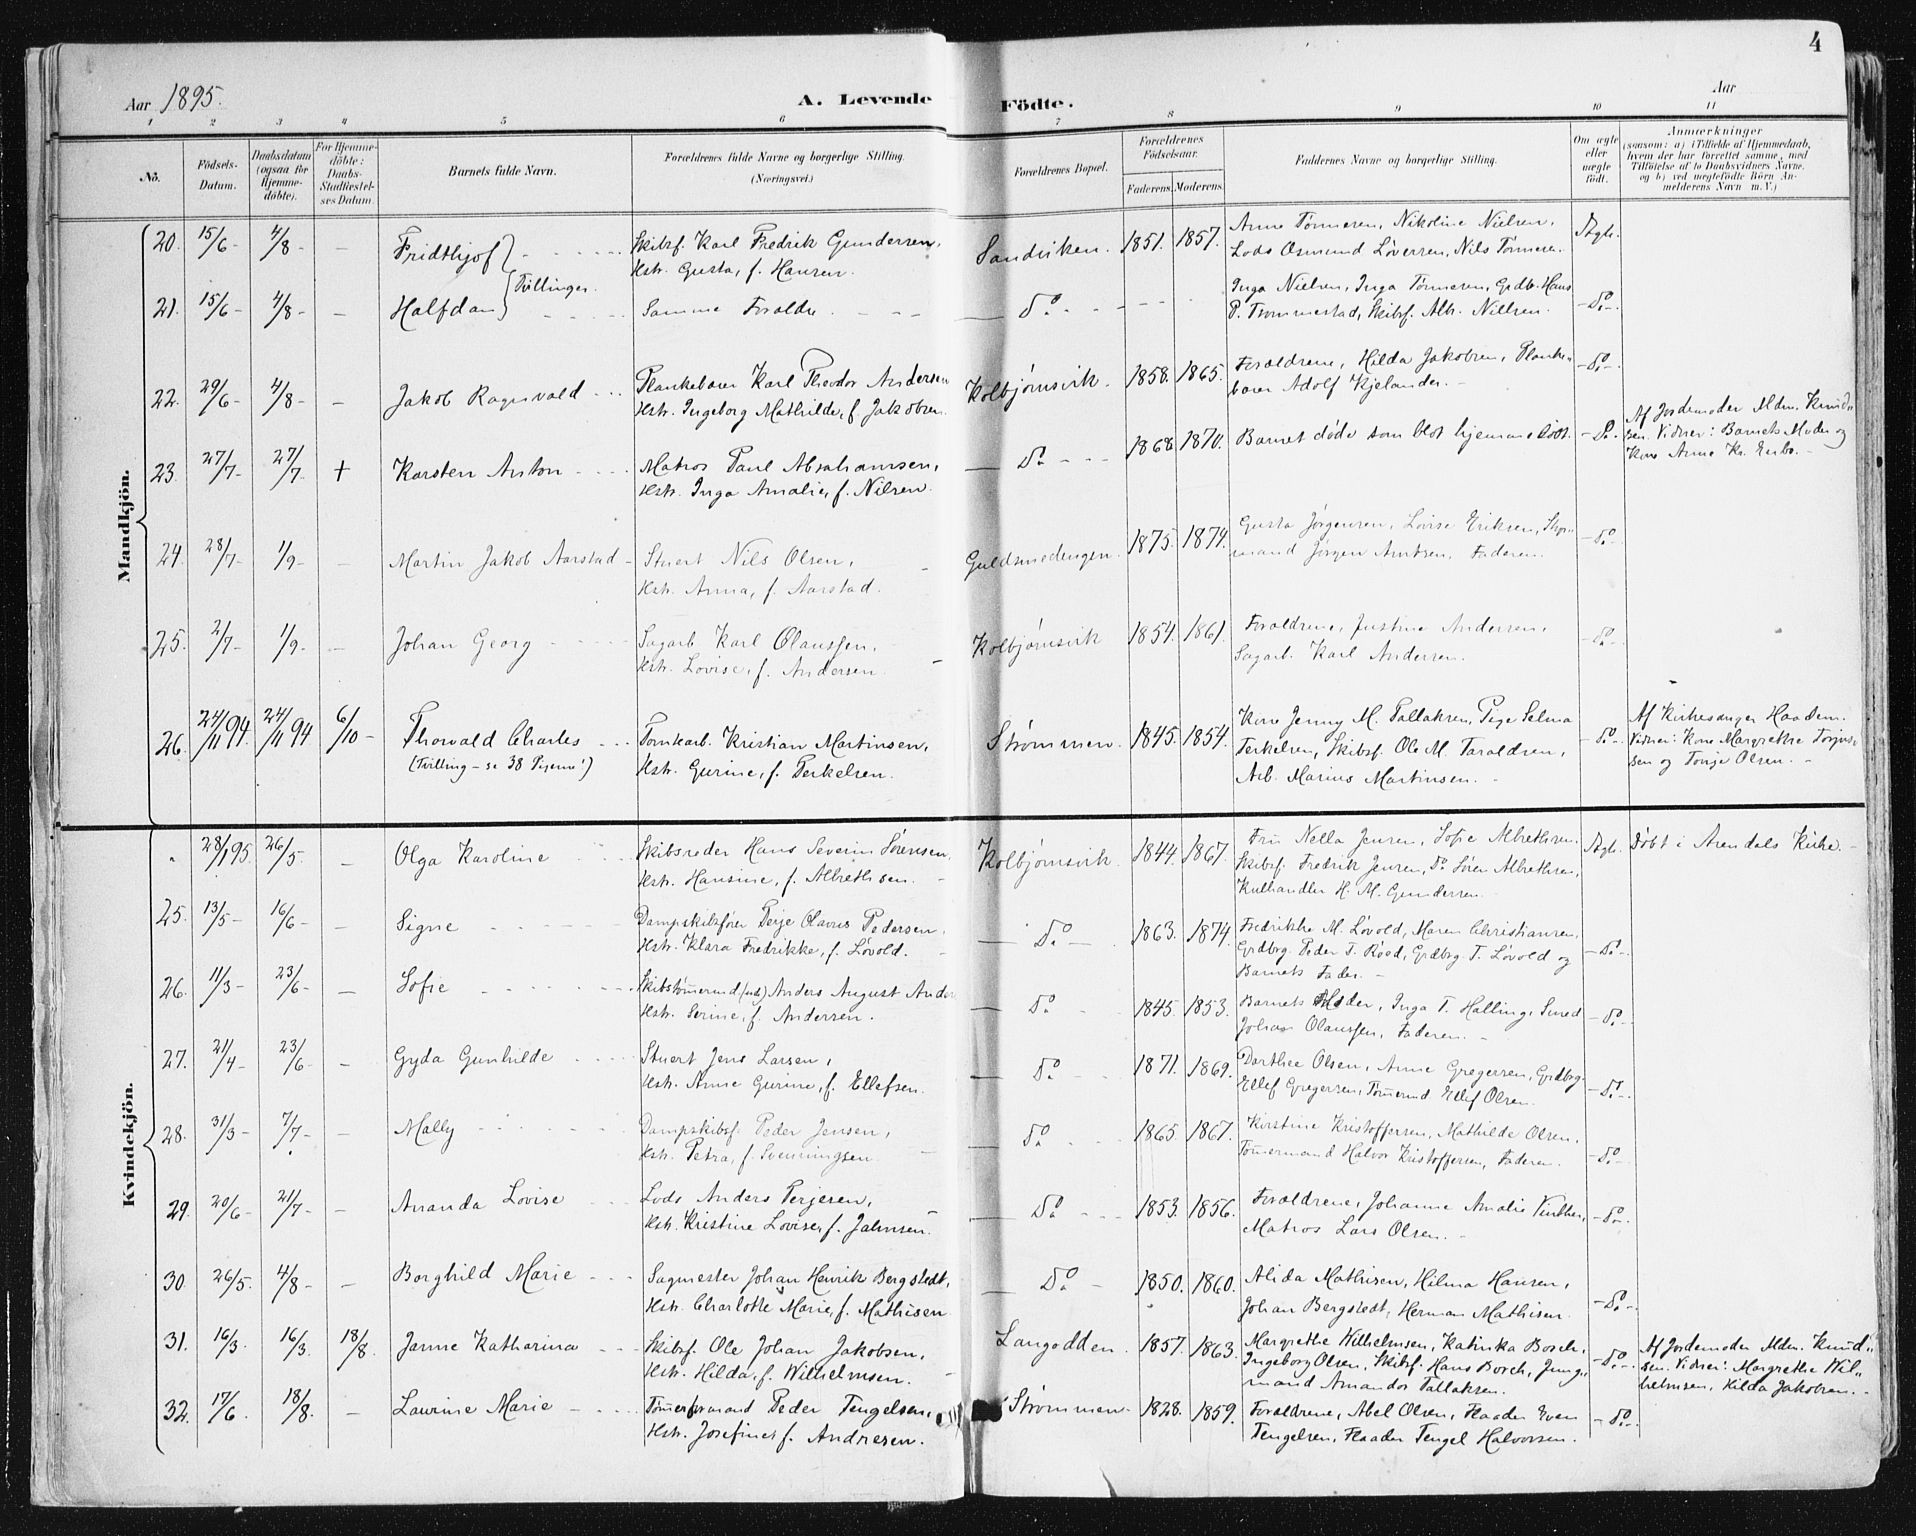 4
Aar 1895.
A. Levende Födte.
Aar
1 2 3 4 5 6 7 8 9 10 11
No.
Födsels-Datum.
Daabsdatum (ogsaa for Hjemmedöbte).
For Hjemmedöbte: Daabs-Stadfæstelses Datum.
Barnets fulde Navn.
Forældrenes fulde Navne og borgerlige Stilling. (Næringsvei.)
Forældrenes Bopæl.
Forældrenes Födselsaar.
Faderens. Moderens.
Faddernes Navne og borgerlige Stilling.
Om ægte eller uægte födt.
Anmærkninger
(saasom: a) i Tilfælde af Hjemmedaab,
hvem der har forrettet samme, med
Tilföielse af to Daabsvidners Navne,
og b) ved uægtefödte Börn An-
melderens Navn m. V.)
Mandkjön.
20. 15/6 - 4/8 - - Fridthjof } Skibsf. Karl Fredrik Gundersen, Sandviken. 1851. 1857. Anne Tönnesen, Nikoline Nielsen, Ægt.
Hstr. Gusta, f. Hansen. Lods Osmund Löversen, Nils Tönnesen.
Tvillinger.
21. 15/6 - 4/8 - - Halfdan } Samme Forældre - Do - Inga Nielsen, Inga Tönnesen, Grdb. Hans - Do -
P. Trommestad, Skibsf. Alb. Nielsen.
22. 29/6 - 4/8 - - Jakob Ragnvald Plankebærer Karl Theodor Andersen Kolbjörnsvik. 1858. 1865. Forældrene, Hilda Jakobsen, Planke- - Do -
Hstr. Ingeborg Mathilde, f. Jakobsen. bærer Adolf Kjelander.
23. 27/7 - 27/7 - + Karsten Anton Matros Paul Abrahamsen, - Do - 1868. 1870. Barnet döde som blot hjemmedöbt. - Do - Af Jordemoder Mdm. Knud-
Hstr. Inga Amalie, f. Nilsen. sen. Vidner: Barnets Moder og
Kone Anne Kr.
24. 28/7 - 1/9 - - Martin Jakob Aarstad - Stuert Nils Olsen, Guldsmedengen. 1875. 1874. Gusta Jörgensen, Lovise Eriksen, - Do -
Hstr. Anna, f. Aarstad. mand Jörgen Arntsen, Faderen.
25. 2/7 - 1/9 - - Johan Georg Sagarb. Karl Olaussen, Kolbjörnsvik 1854. 1861. Forældrene, Justine Andersen, - Do -
Hstr. Lovise, f. Andersen. Sagarb. Karl Andersen.
26. 24/11 94. 24/11 94 6/10 - Thorvald Charles Tomtearb. Kristian Martinsen, Strömmen. 1845. 1854. Kone Jenny M. Tallaksen, Pige Selma - Do - Af Kirkesanger Haadem.
(Tvilling - se 38 Pigerne!) Hstr. Gurine, f. Terkelsen. Terkelsen, Skibsf. Ole M. Taraldsen, Vidner: Kone Margrethe Torjus-
Arb. Marius Martinsen. sen og Tonje Olsen.
Kvindekjön.
28/1 95. 26/5. - Olga Karoline Skibsreder Hans Severin Sörensen, Kolbjörnsvik. 1844. 1867. Fru Nella Jensen, Sofie Albrethsen, Ægt. Döbt i Arendals Kirke.
Hstr. Hansine, f. Albrethsen. Skibsf. Fredrik Jensen, Do Sören Albrethsen,
Kulhandler H. M. Gundersen.
25. 13/5 - 16/6 - - Signe Dampskibsförer Terje Olavus Pedersen, - Do - 1863. 1874. Fredrikke M. Lövold, Maren Christiansen, - Do -
Hstr. Klara Fredrikke, f. Lövold. Grdbrg. Peder T. Röed, Grdbrg. T. Lövold og
Barnets Fader.
26. 11/3 - 23/6 - - Sofie Skibstömmermand Anders August Ander Do 1845. 1853. Barnets Moder, Inga T. Halling, Smed - Do -
Hstr. Serine, f. Andersen. Johan Olaussen, Faderen.
27. 21/4 - 23/6 - - Gyda Gunhilde Stuert Jens Larsen, - Do - 1871. 1869. Dorthee Olsen, Anne Gregersen, Grdbrg. - Do -
Hstr. Anne Gurine, f. Ellefsen. Ellef Gregersen, Tömmermd Ellef Olsen.
28. 31/3 - 7/7 - - Mally Dampskibsf. Peder Jensen, Do 1865. 1867. Kirstine Kristoffersen, Mathilde Olsen, - Do -
Hstr. Petra, f. Svenningsen. Tömmermand Halvor Kristoffersen, Faderen.
29. 20/6 - 21/7 - - Amanda Lovise Lods Anders Terjesen, - Do - 1853. 1856. Forældrene, Johanne Amalie - Do -
Hstr. Kristine Lovise, f. Jahnsen. Matros Lars Olsen.
30. 26/5. 4/8 - - Borghild Marie Sagmester Johan Henrik Bergstedt, Do - 1850. 1860. Alida Mathisen, Hilma Hansen, - Do -
Hstr. Charlotte Marie, f. Mathisen. Johan Bergstedt, Herman Mathisen.
31. 16/3. 16/3. 18/8. Janne Katharina Skibsf. Ole Johan Jakobsen, Langodden. 1857. 1863. Margrethe Wilhelmsen, Katinka Bosch, - Do - Af Jordemoder Mdm. Knud-
Hstr. Hilda, f. Wilhelmsen. Ingeborg Olsen, Skibsf. Hans Bosch, Jung- sen. Vidner: Margrethe Wil-
mand Amandor Tallaksen. helmsen, Hilda Jakobsen.
32. 17/6. 18/8. - Laurine Marie Tömmermand Peder Tengelsen, Strömmen. 1828. 1859. Forældrene, Abel Olsen, Flaader Even - Do -
Hstr. Josefine, f. Andresen. Tengelsen, Flaader Tengel Halvorsen.